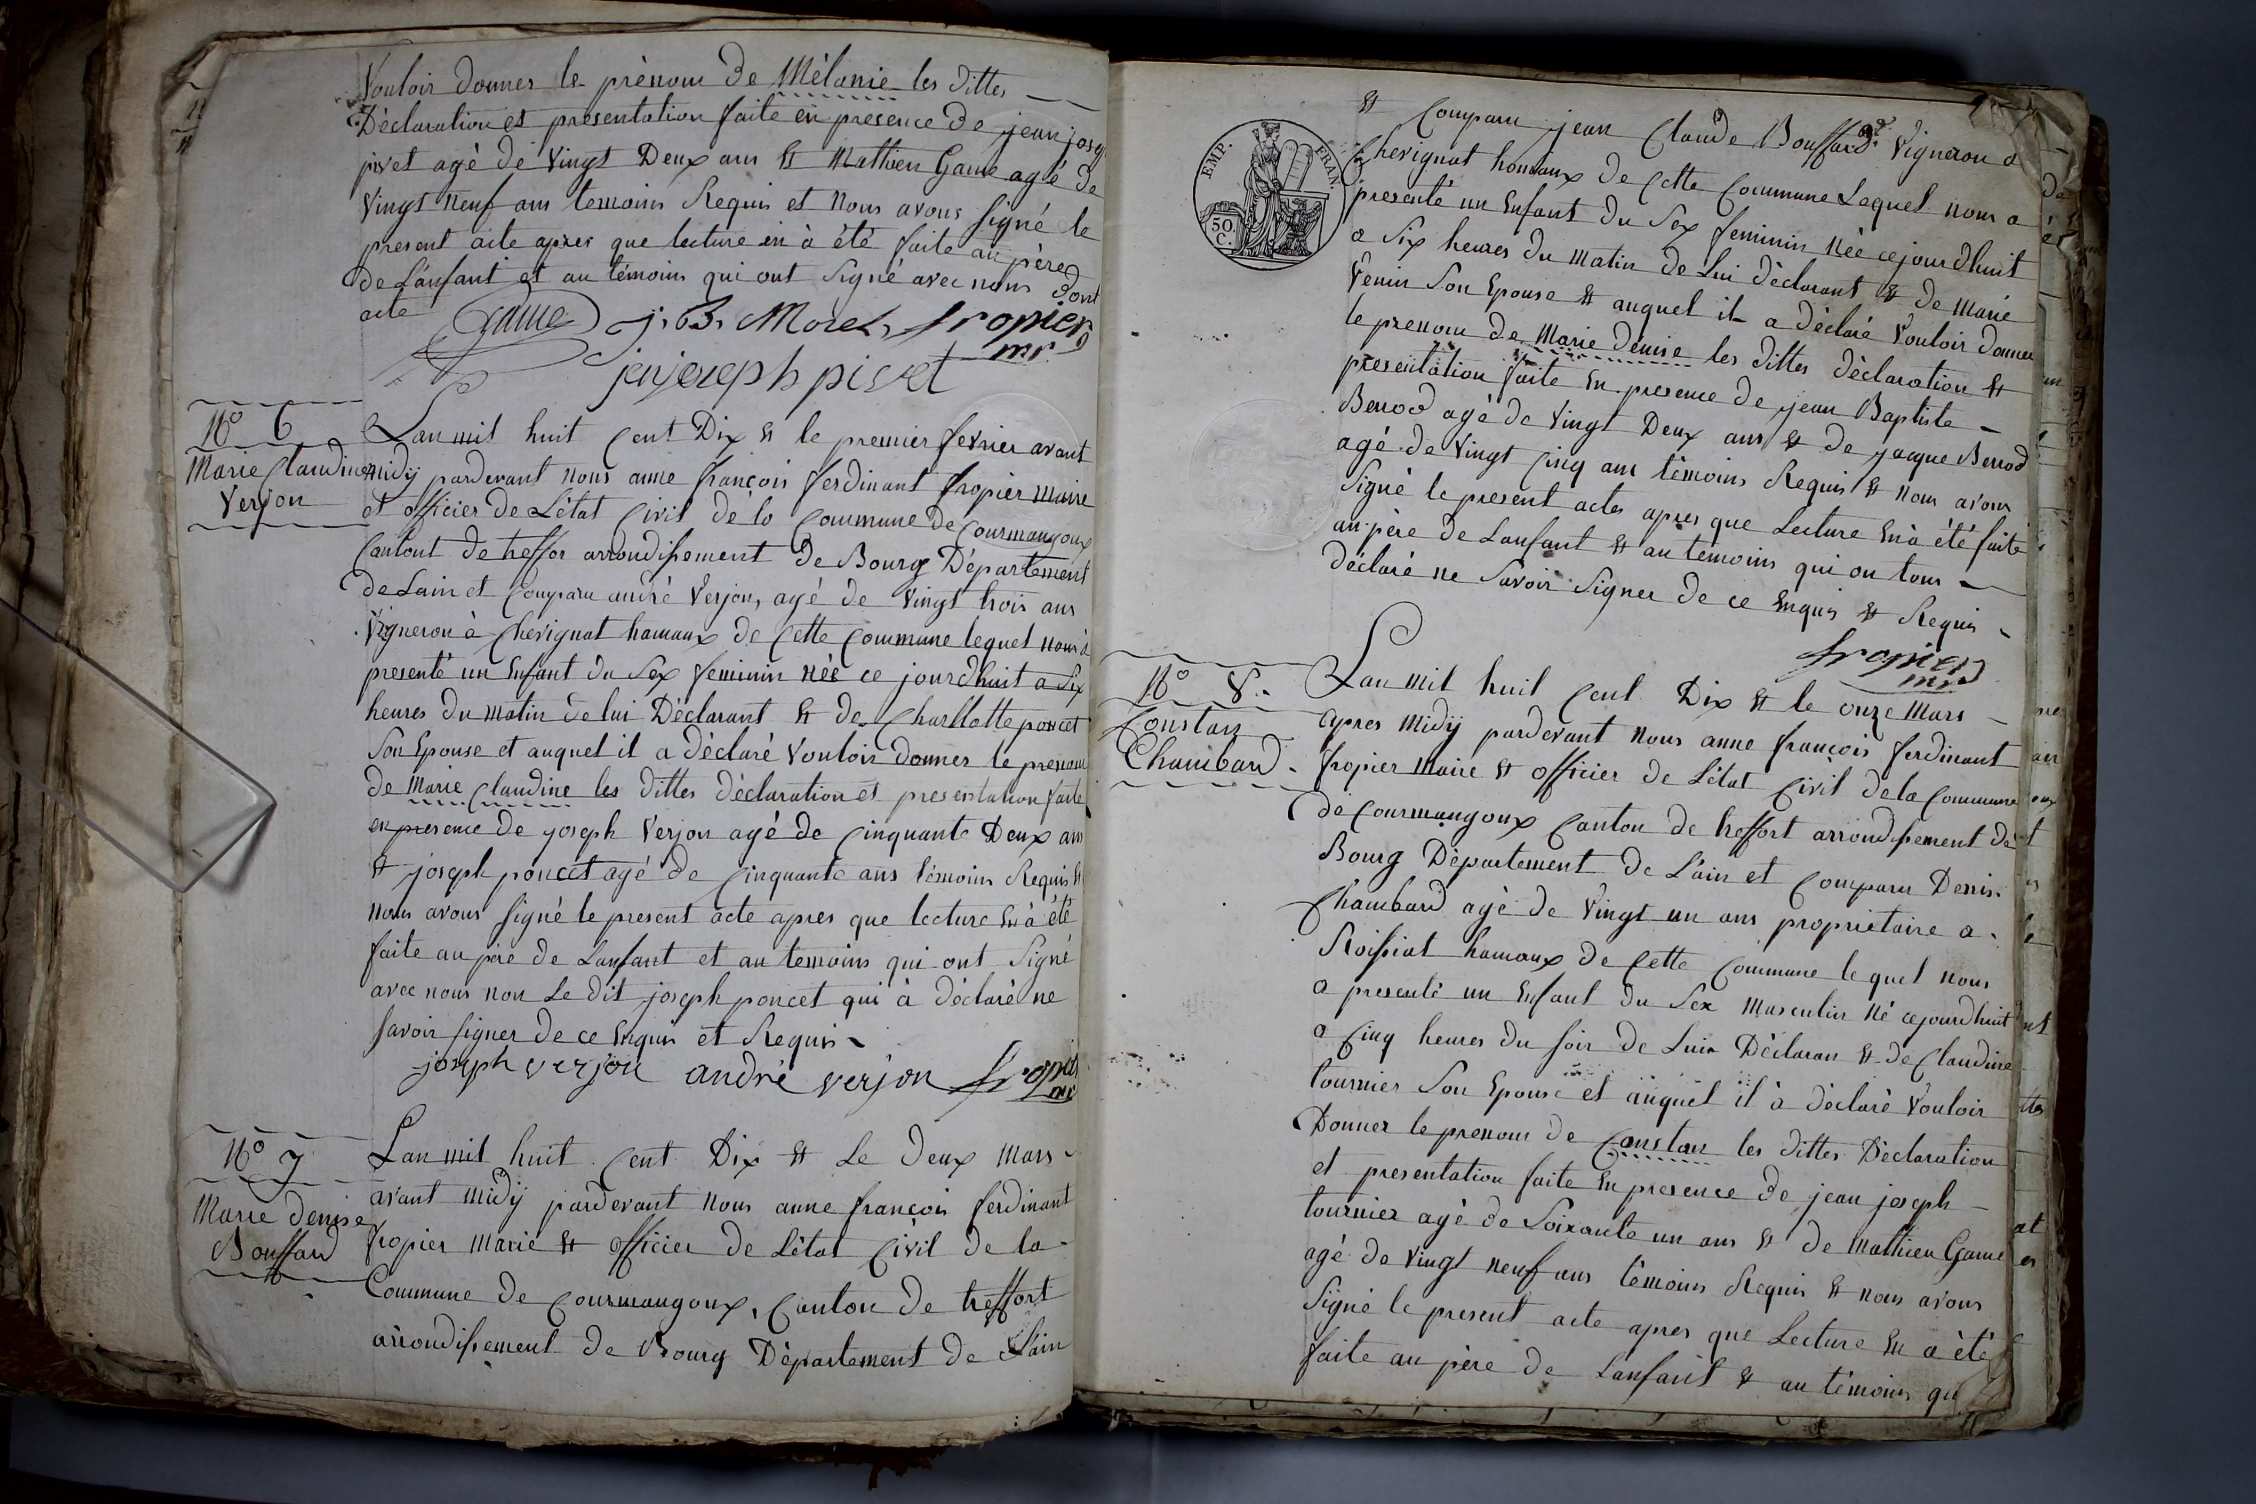 Vouloir donner le prénom de Mélanie les dittes
Déclaration et présentation faite en presence de jean josep
pivet agé de vingt Deux ans et Mathieu Game agé de
vingt neuf ans temoins Requis et nous avons signé le
present acte apres que lecture en à été faite au père
de Lanfant et au témoins qui ont signé avec nous dont
acte
Game j. B. Morel, fropier
mr
janjoseph pivet
No 6
Marie Claudine
Verjon
Lan mil huit Cent Dix et le premier fevrier avant
midij pardevant nous anne françois ferdinant fropier maire
et officier de L'état Civil de la Commune de Courmangoux
Cantont de treffor arrondissement de Bourg Département
de Lain et Comparu andré Verjon, agé de vingt trois ans
Vigneron à Chevignat hamaux de Cette Commune lequel nous à
presenté un Enfant du Sex feminin née ce jourdhuit a Six
heures du matin de lui Déclarant et de Charllotte poncet
Son Epouse et auquel il a déclaré vouloir donner le prenom
de Marie Claudine les dittes déclaration et presentation faite
en presence de joseph Verjon agé de Cinquante Deux ans
et joseph poncet agé de Cinquante ans témoins Requis et
nous avons signé le present acte apres que lecture en à été
faite au père de Lanfant et au temoins qui ont Signé
avec nous non Le dit joseph poncet qui à déclaré ne
savoir signer de ce Enquis et Requis
joseph verjon andré verjon fropier
mr
No 7
Marie denise
Bouffard
Lan mil huit Cent Dix et Le Deux Mars
avant midij pardevant nous anne françois ferdinant
fropier Marie et officier de L'état Civil de la
Commune de Courmangoux, Canton de treffort
arrondissement de Bourg Département de Lain
EMP. FRAN.
50
C.
et Comparu jean Claude Bouffard Vigneron à
Chevignat hamaux de Cette Commune Lequel nous a
presenté un Enfant du Sex feminin née cejourdhuit
a Six heures du matin de Lui déclarant et de Marie
Venin Son Epouse et auquel il a déclaré Vouloir donner
le prenom de Marie denise les dittes déclaration et
presentation faite en presence de jean Baptiste
Berrod agé de vingt Deux ans et de jacque Berrod
agé de vingt Cinq ans témoins Requis et nous avons
Signé le present actes apres que Lecture en à été faite
au père de Lanfant et au témoins qui on tous
déclaré ne Savoir Signer de ce Enquis et Requis
fropier
mr
No 8.
Constan
Chambard.
Lan mil huit Cent Dix et le onze Mars
apres Midij pardevant nous anne françois ferdinant
fropier Maire et officier de L'état Civil de la Commune
de Courmangoux Canton de treffort arrondissement de
Bourg Département de L'ain et Comparu Denis
Chambard agé de vingt un ans propriétaire a
Roissiat hamaux de Cette Commune le quel nous
a presenté un Enfant du Sex Masculin né cejourdhuit
a Cinq heures du soir de Lui Déclaran et de Claudine
tournier Son Epouse et auquel il à déclaré Vouloir
Donner le prenom de Constan les dittes Déclaration
et presentation faite en presence de jean joseph
tournier agé de Soixante un ans et de Mathieu Game
agé de vingt neuf ans témoins Requis et nous avons
Signé le present acte apres que Lecture en a été
faite au père de Lanfant et au témoins qu